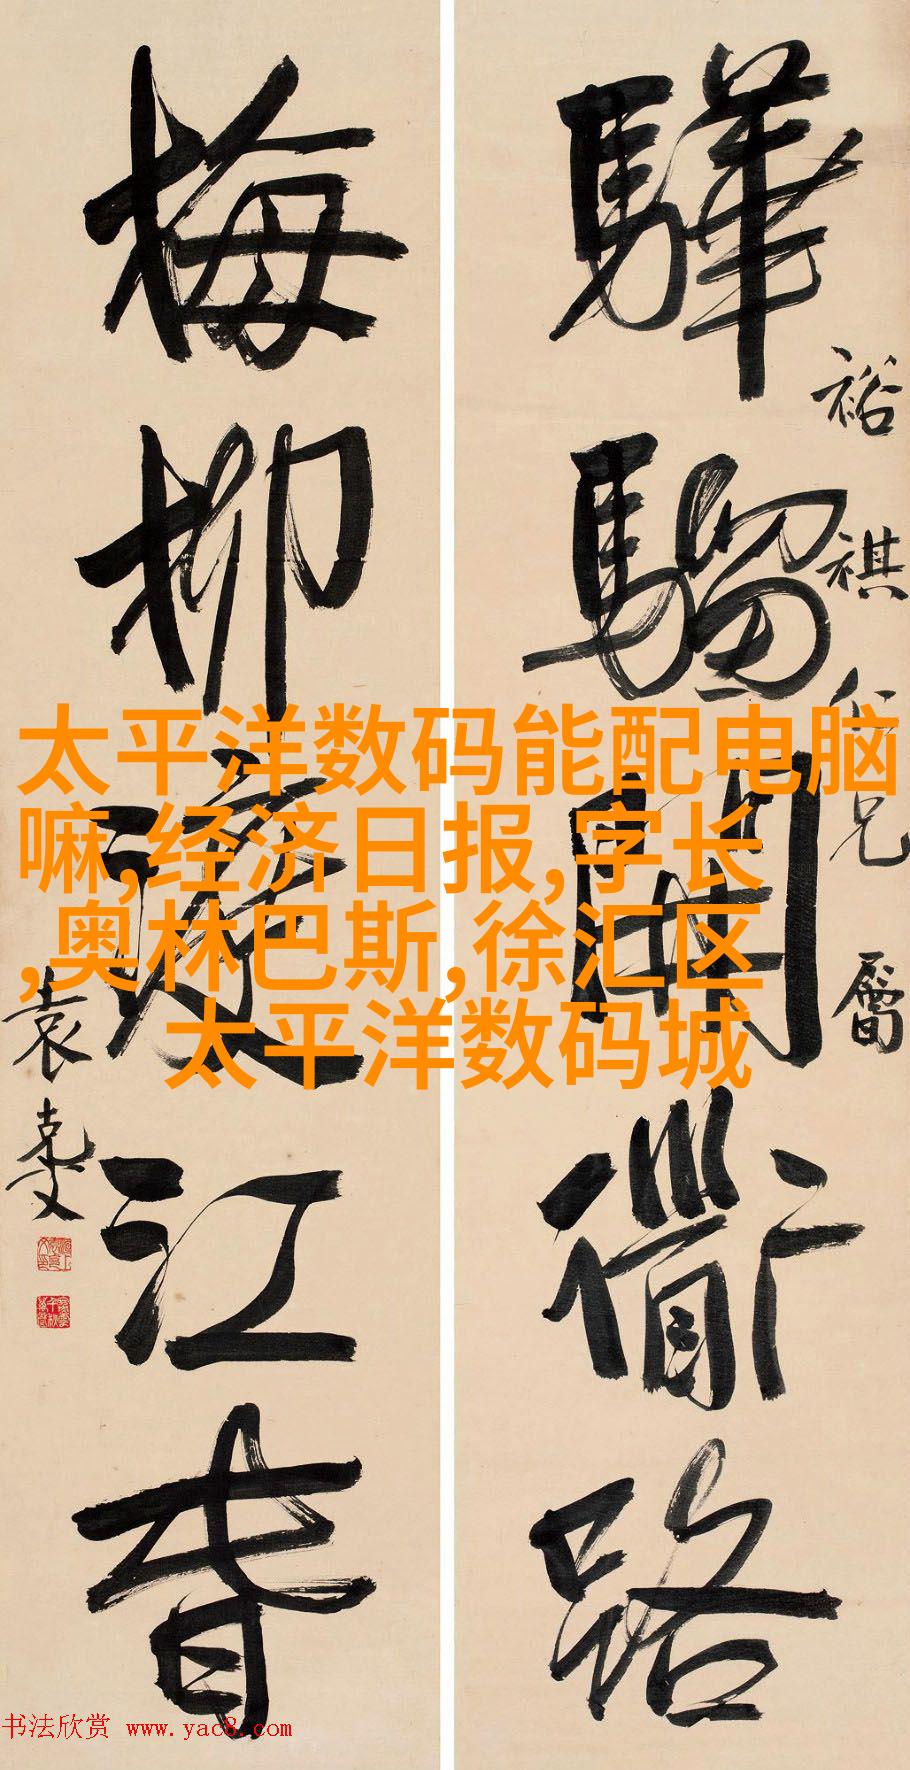 驊騮開衜路
裕祺仁兄屬
梅柳渡江春
袁克文
太平洋数码能配电脑
嘛,经济日报,字长
,奥林巴斯,徐汇区
太平洋数码城
书法欣赏 www.yac8.com